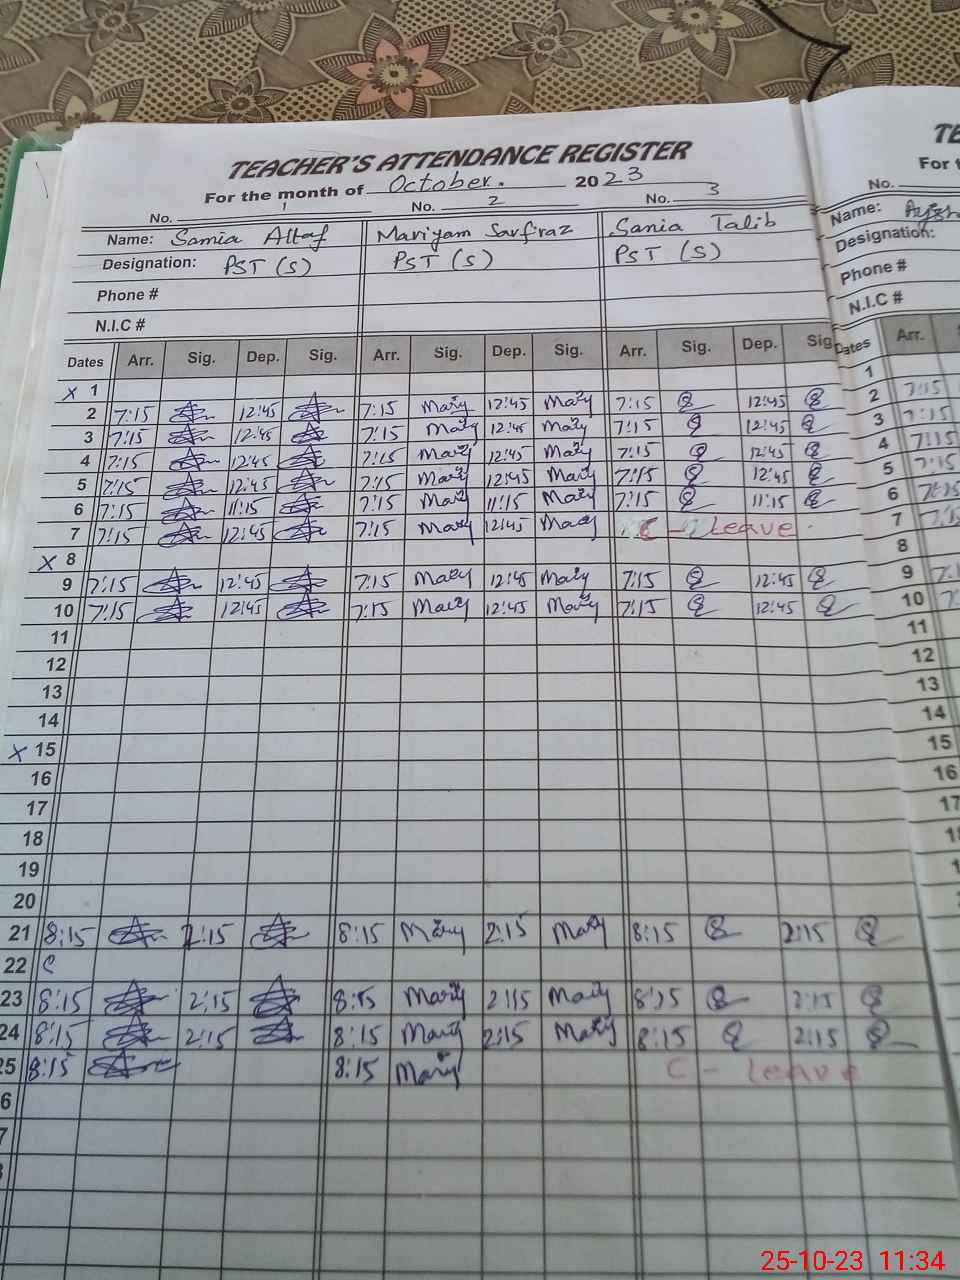 TEACHER'S ATTENDANCE REGISTER
For the month of October. 2023
No. 1 No. 2 No. 3
Name: Samia Altaf Mariyam Sarfiraz Sania Talib
Designation: PST (S) PST (S) PST (S)
Phone #
N.I.C #
Dates Arr. Sig. Dep. Sig. Arr. Sig. Dep. Sig. Arr. Sig. Dep. Sig
X 1
2 7:15 12:45 7:15 Mary 12:45 Mary 7:15 12:45
3 7:15 12:45 7:15 Mary 12:45 Mary 7:15 12:45
4 7:15 12:45 7:15 Mary 12:45 Mary 7:15 12:45
5 7:15 12:45 7:15 Mary 12:45 Mary 7:15 12:45
6 7:15 11:15 7:15 Mary 11:15 Mary 7:15 11:15
7 7:15 12:45 7:15 Mary 12:45 Mary C - Leave
X 8
9 7:15 12:45 7:15 Mary 12:45 Mary 7:15 12:45
10 7:15 12:45 7:15 Mary 12:45 Mary 7:15 12:45
11
12
13
14
X 15
16
17
18
19
20
21 8:15 2:15 8:15 Mary 2:15 Mary 8:15 2:15
22
23 8:15 2:15 8:15 Mary 2:15 Mary 8:15 2:15
24 8:15 2:15 8:15 Mary 2:15 Mary 8:15 2:15
25 8:15 8:15 Mary C - Leave
6
7
TE
For t
No.
Name:
Designation:
Phone #
N.I.C #
Dates Arr.
1
2 7:15
3 7:15
4 7:15
5 7:15
6 7:15
7
8
9
10
11
12
13
14
15
16
17
25-10-23 11:34